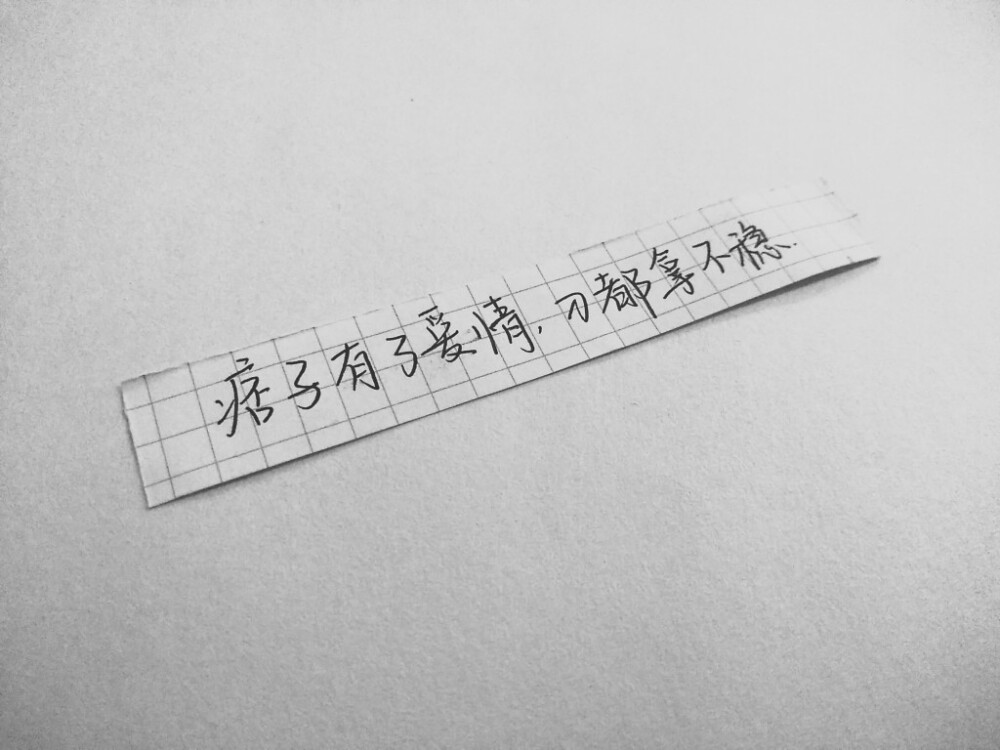 痞子有了爱情,刀都拿不稳.